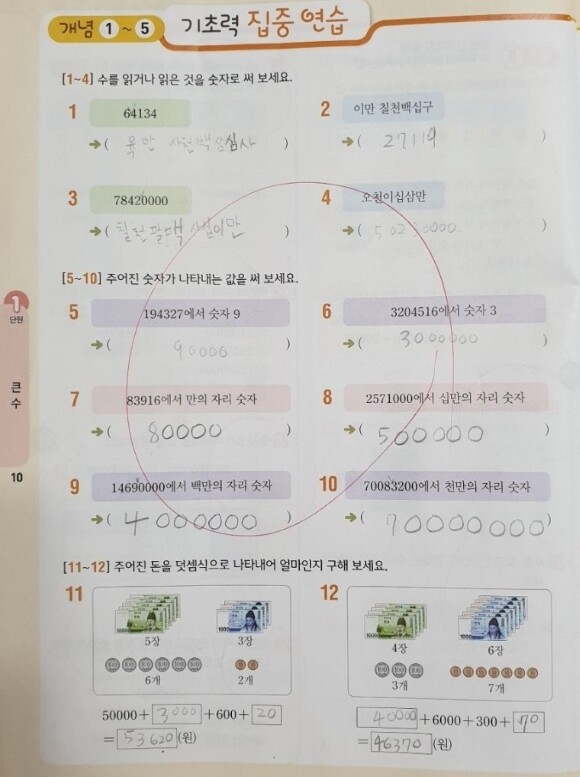 개념 1 ~ 5 기초력 집중 연습
[1~4] 수를 읽거나 읽은 것을 숫자로 써 보세요.
1 64134
➔( 육만 사천백삼십사 )
2 이만 칠천백십구
➔( 27119 )
3 78420000
➔( 칠천팔백사십이만 )
4 오천이십삼만
➔( 50230000 )
[5~10] 주어진 숫자가 나타내는 값을 써 보세요.
5 194327에서 숫자 9
➔( 90000 )
6 3204516에서 숫자 3
➔( 3000000 )
7 83916에서 만의 자리 숫자
➔( 80000 )
8 2571000에서 십만의 자리 숫자
➔( 500000 )
9 14690000에서 백만의 자리 숫자
➔( 4000000 )
10 70083200에서 천만의 자리 숫자
➔( 70000000 )
1
단원
큰 수
10
[11~12] 주어진 돈을 덧셈식으로 나타내어 얼마인지 구해 보세요.
11
5장 3장
6개 2개
50000+3000+600+20
=53620(원)
12
4장 6장
3개 7개
40000+6000+300+70
=46370(원)